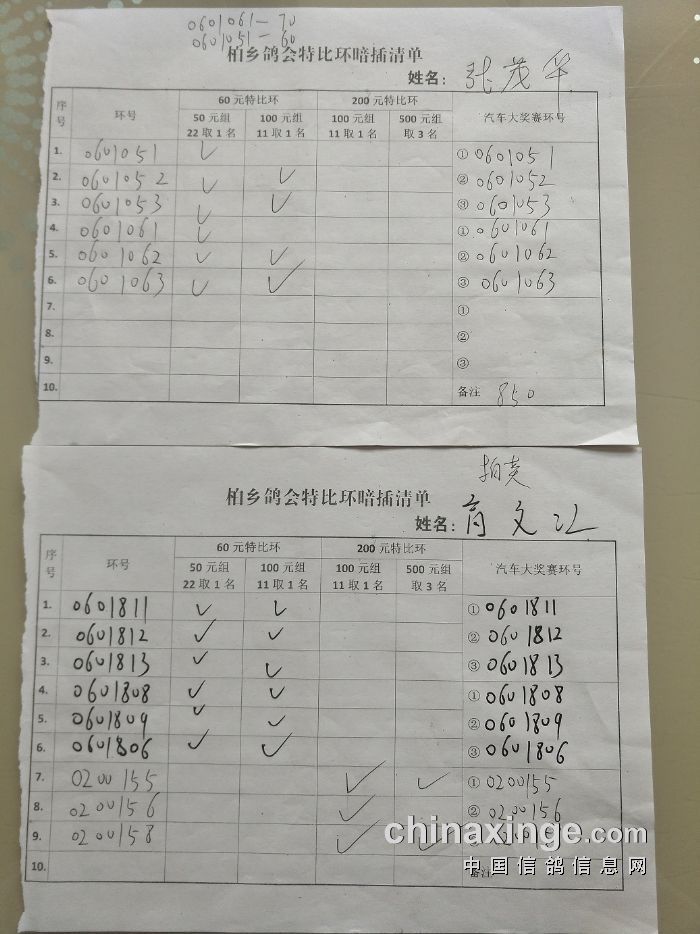 0601061-70
0601051-60
柏乡鸽会特比环暗插清单
姓名：张茂平
序号 环号 60元特比环 200元特比环 汽车大奖赛环号
50元组 22取1名 100元组 11取1名 100元组 11取1名 500元组 取3名
1. 0601051 ✓ ① 0601051
2. 0601052 ✓ ✓ ② 0601052
3. 0601053 ✓ ✓ ③ 0601053
4. 0601061 ✓ ① 0601061
5. 0601062 ✓ ✓ ② 0601062
6. 0601063 ✓ ✓ ③ 0601063
7. ①
8. ②
9. ③
10. 备注 850
拍卖
柏乡鸽会特比环暗插清单
姓名：文江
序号 环号 60元特比环 200元特比环 汽车大奖赛环号
50元组 22取1名 100元组 11取1名 100元组 11取1名 500元组 取3名
1. 0601811 ✓ ✓ ① 0601811
2. 0601812 ✓ ✓ ② 0601812
3. 0601813 ✓ ✓ ③ 0601813
4. 0601808 ✓ ✓ ① 0601808
5. 0601809 ✓ ✓ ② 0601809
6. 0601806 ✓ ✓ ③ 0601806
7. 0200155 ✓ ✓ ① 0200155
8. 0200156 ✓ ② 0200156
9. 0200158 ✓ ✓
10. 备注
chinaxinge.com
中国信鸽信息网